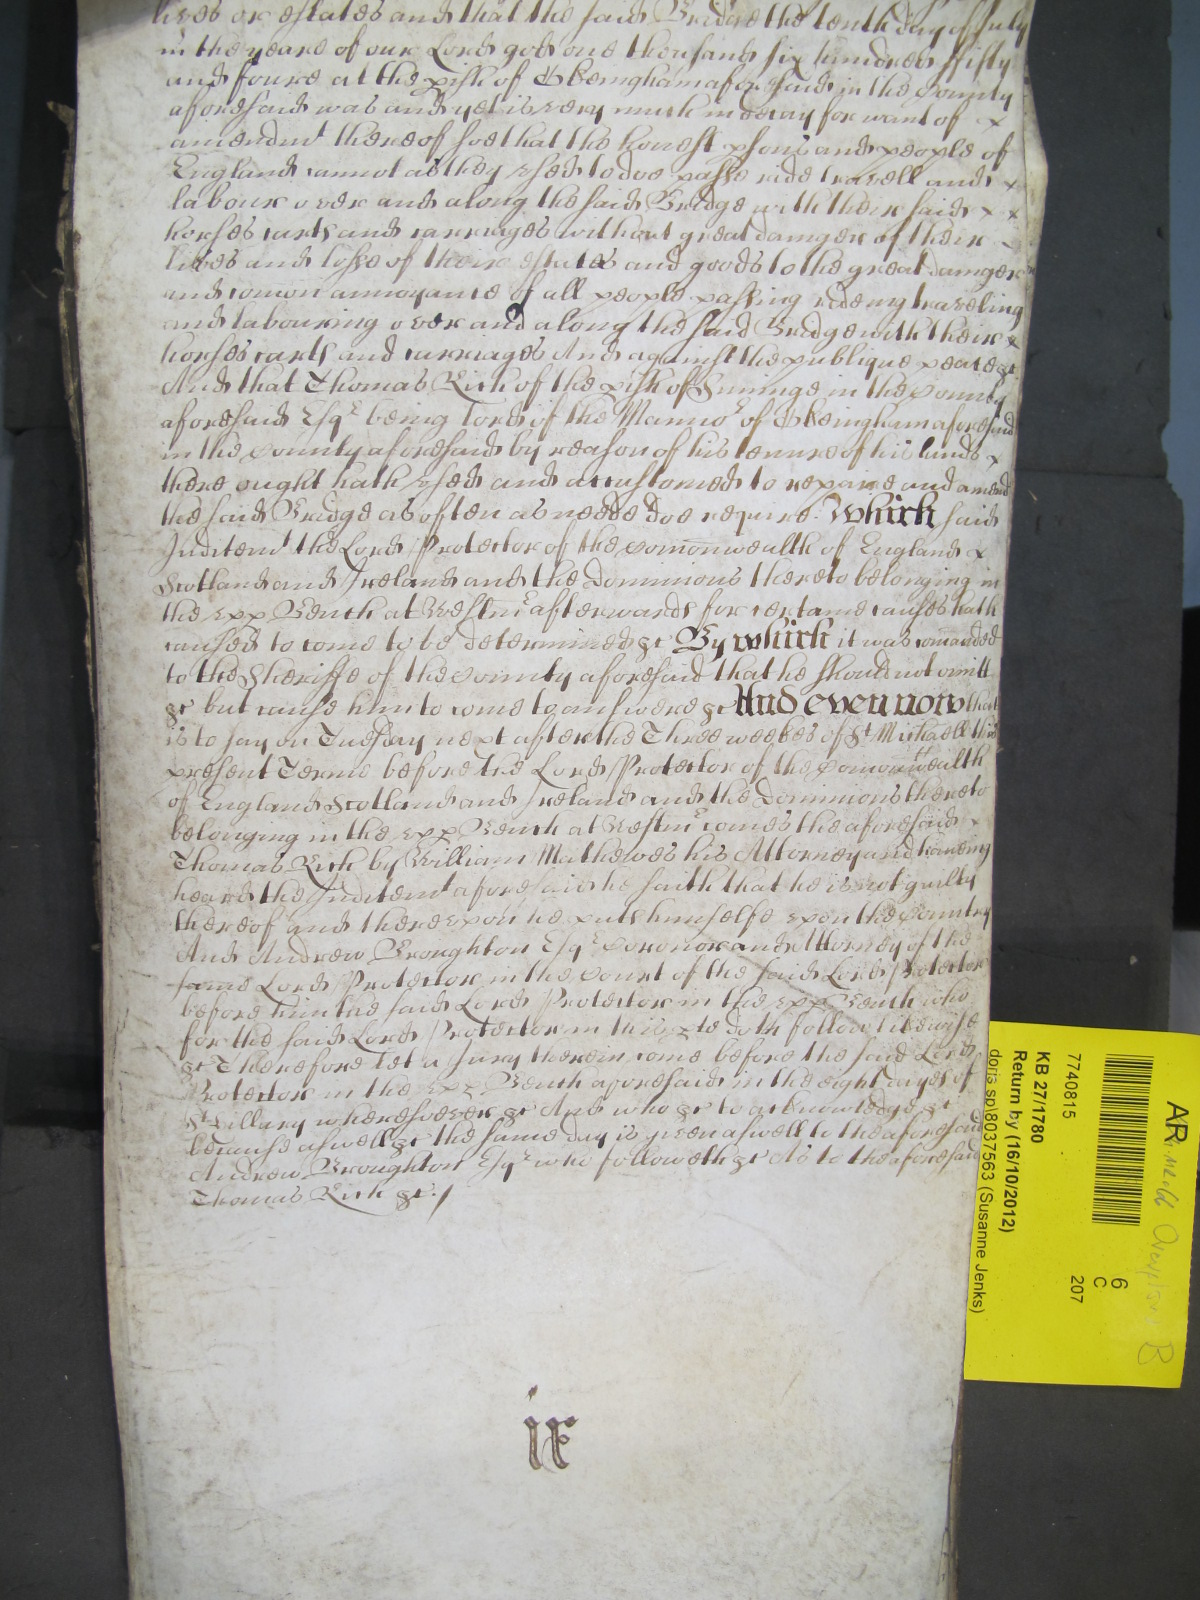 lives or estates and that the said Bridge the tenth day of July
in the yeare of our Lord god one thousand six hundred fifty
and foure at the pish of Okeingham aforesaid in the County
aforesaid was and yet is very much in decay for want of x
amendmt thereof soe that the honest psons and people of
England cannot as they used to doe passe ride travell and x
labour over and along the said Bridge with their said x x
horses carts and carriages without great danger of their
lives and losse of their estates and goods to the great damger
and comon annoyance of all people passing rideing traveling
and labouring over and along the said Bridge with their x
horses carts and carriages And against the publique peace &c
And that Thomas Rich of the pish of Sunnings in the County
aforesaid Esqr being lord of the Mannor of Okeingham aforesaid
in the County aforesaid by reason of his tenure of his lands x
there ought hath used and accustomed to repaire and amend
the said Bridge as often as neede doe require. Which said
Inditemt the Lord Protector of the Comonwealth of England x
Scotland and Ireland and the Dominions thereto belonging in
the upp Bench at Westmr afterwards for certaine causes hath
caused to come to be determined &c By which it was comanded
to the Sheriffe of the County aforesaid that he should not omitt
&c but cause him to come to answere &c And even now that
is to say on Tuesday next after the Three weekes of St Michaell this
present Terme before the Lord Protector of the Comonwealth
of England Scotland and Ireland and the Dominions thereto
belonging in the upp Bench at Westmr comes the aforesaid x
Thomas Rich by William Mathewes his Attorney and haveing
heard the Inditemt aforesaid he saith that he is not guilty
thereof and thereupon he puts himselfe upon the Country
And Andrew Broughton Esqr Coronor and Attorney of the
same Lord Protector in the Court of the said Lord Protector
before him the said Lord Protector in the upp Bench who
for the said Lord Protector in this pte doth follow likewise
&c Therefore let a Jury therein come before the said Lord
Protector in the upp Bench aforesaid in the eight dayes of
St Hillary wheresoever &c And who &c to acknowledge &c
because aswell &c the same day is given aswell to the aforesaid
Andrew Broughton Esqr who followeth &c As to the aforesaid
Thomas Rich &c./
AR
6
C
207
7740815
KB 27/1780
Return by (16/10/2012)
doris sp\8037563 (Susanne Jenks)